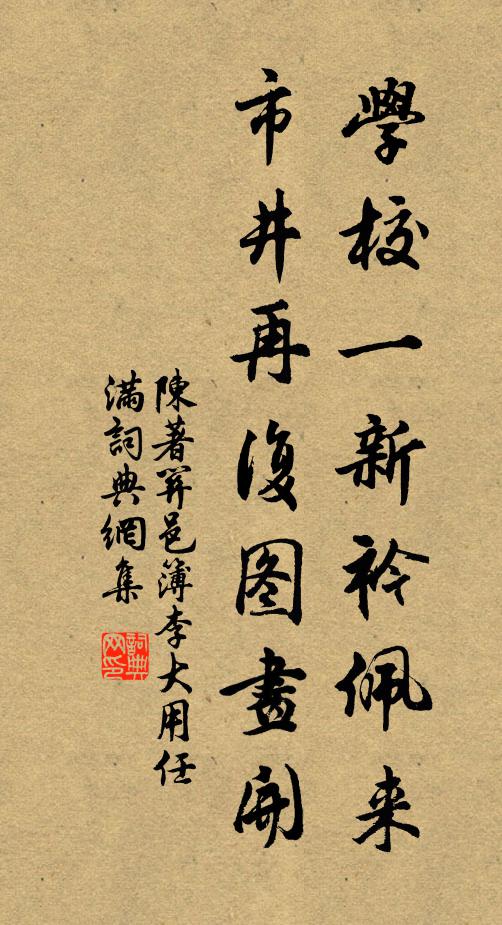 學校一新衿佩来
市井再復图畫開
陳著羿邑簿李大用任
滿詞典網集
詞典
网印